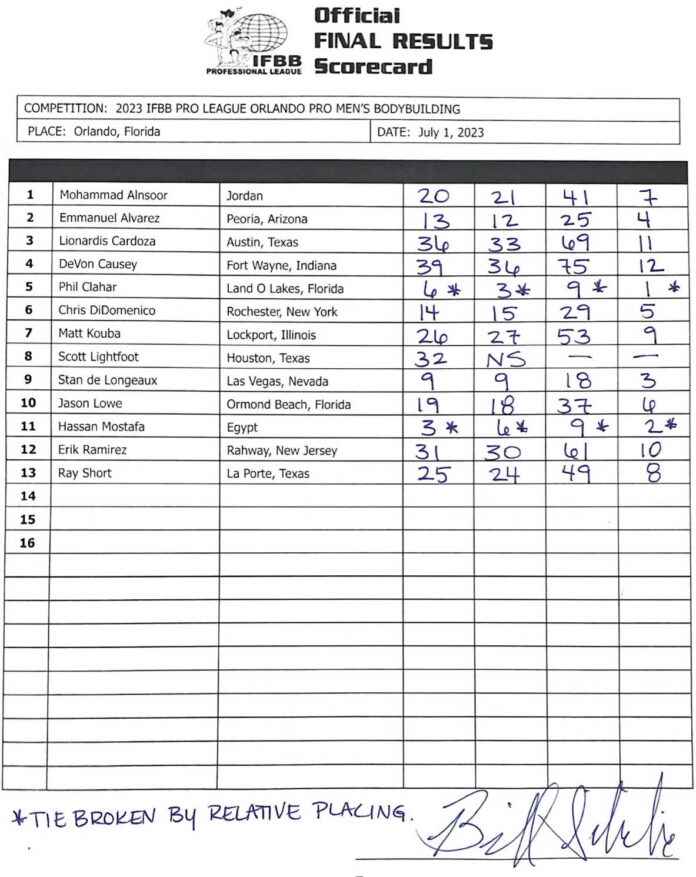 Official
FINAL RESULTS
Scorecard
IFBB
PROFESSIONAL LEAGUE
COMPETITION: 2023 IFBB PRO LEAGUE ORLANDO PRO MEN'S BODYBUILDING
PLACE: Orlando, Florida DATE: July 1, 2023
1 Mohammad Alnsoor Jordan 20 21 41 7
2 Emmanuel Alvarez Peoria, Arizona 13 12 25 4
3 Lionardis Cardoza Austin, Texas 36 33 69 11
4 DeVon Causey Fort Wayne, Indiana 39 36 75 12
5 Phil Clahar Land O Lakes, Florida 6* 3* 9* 1*
6 Chris DiDomenico Rochester, New York 14 15 29 5
7 Matt Kouba Lockport, Illinois 26 27 53 9
8 Scott Lightfoot Houston, Texas 32 NS — —
9 Stan de Longeaux Las Vegas, Nevada 9 9 18 3
10 Jason Lowe Ormond Beach, Florida 19 18 37 6
11 Hassan Mostafa Egypt 3* 6* 9* 2*
12 Erik Ramirez Rahway, New Jersey 31 30 61 10
13 Ray Short La Porte, Texas 25 24 49 8
14
15
16
*TIE BROKEN BY RELATIVE PLACING.